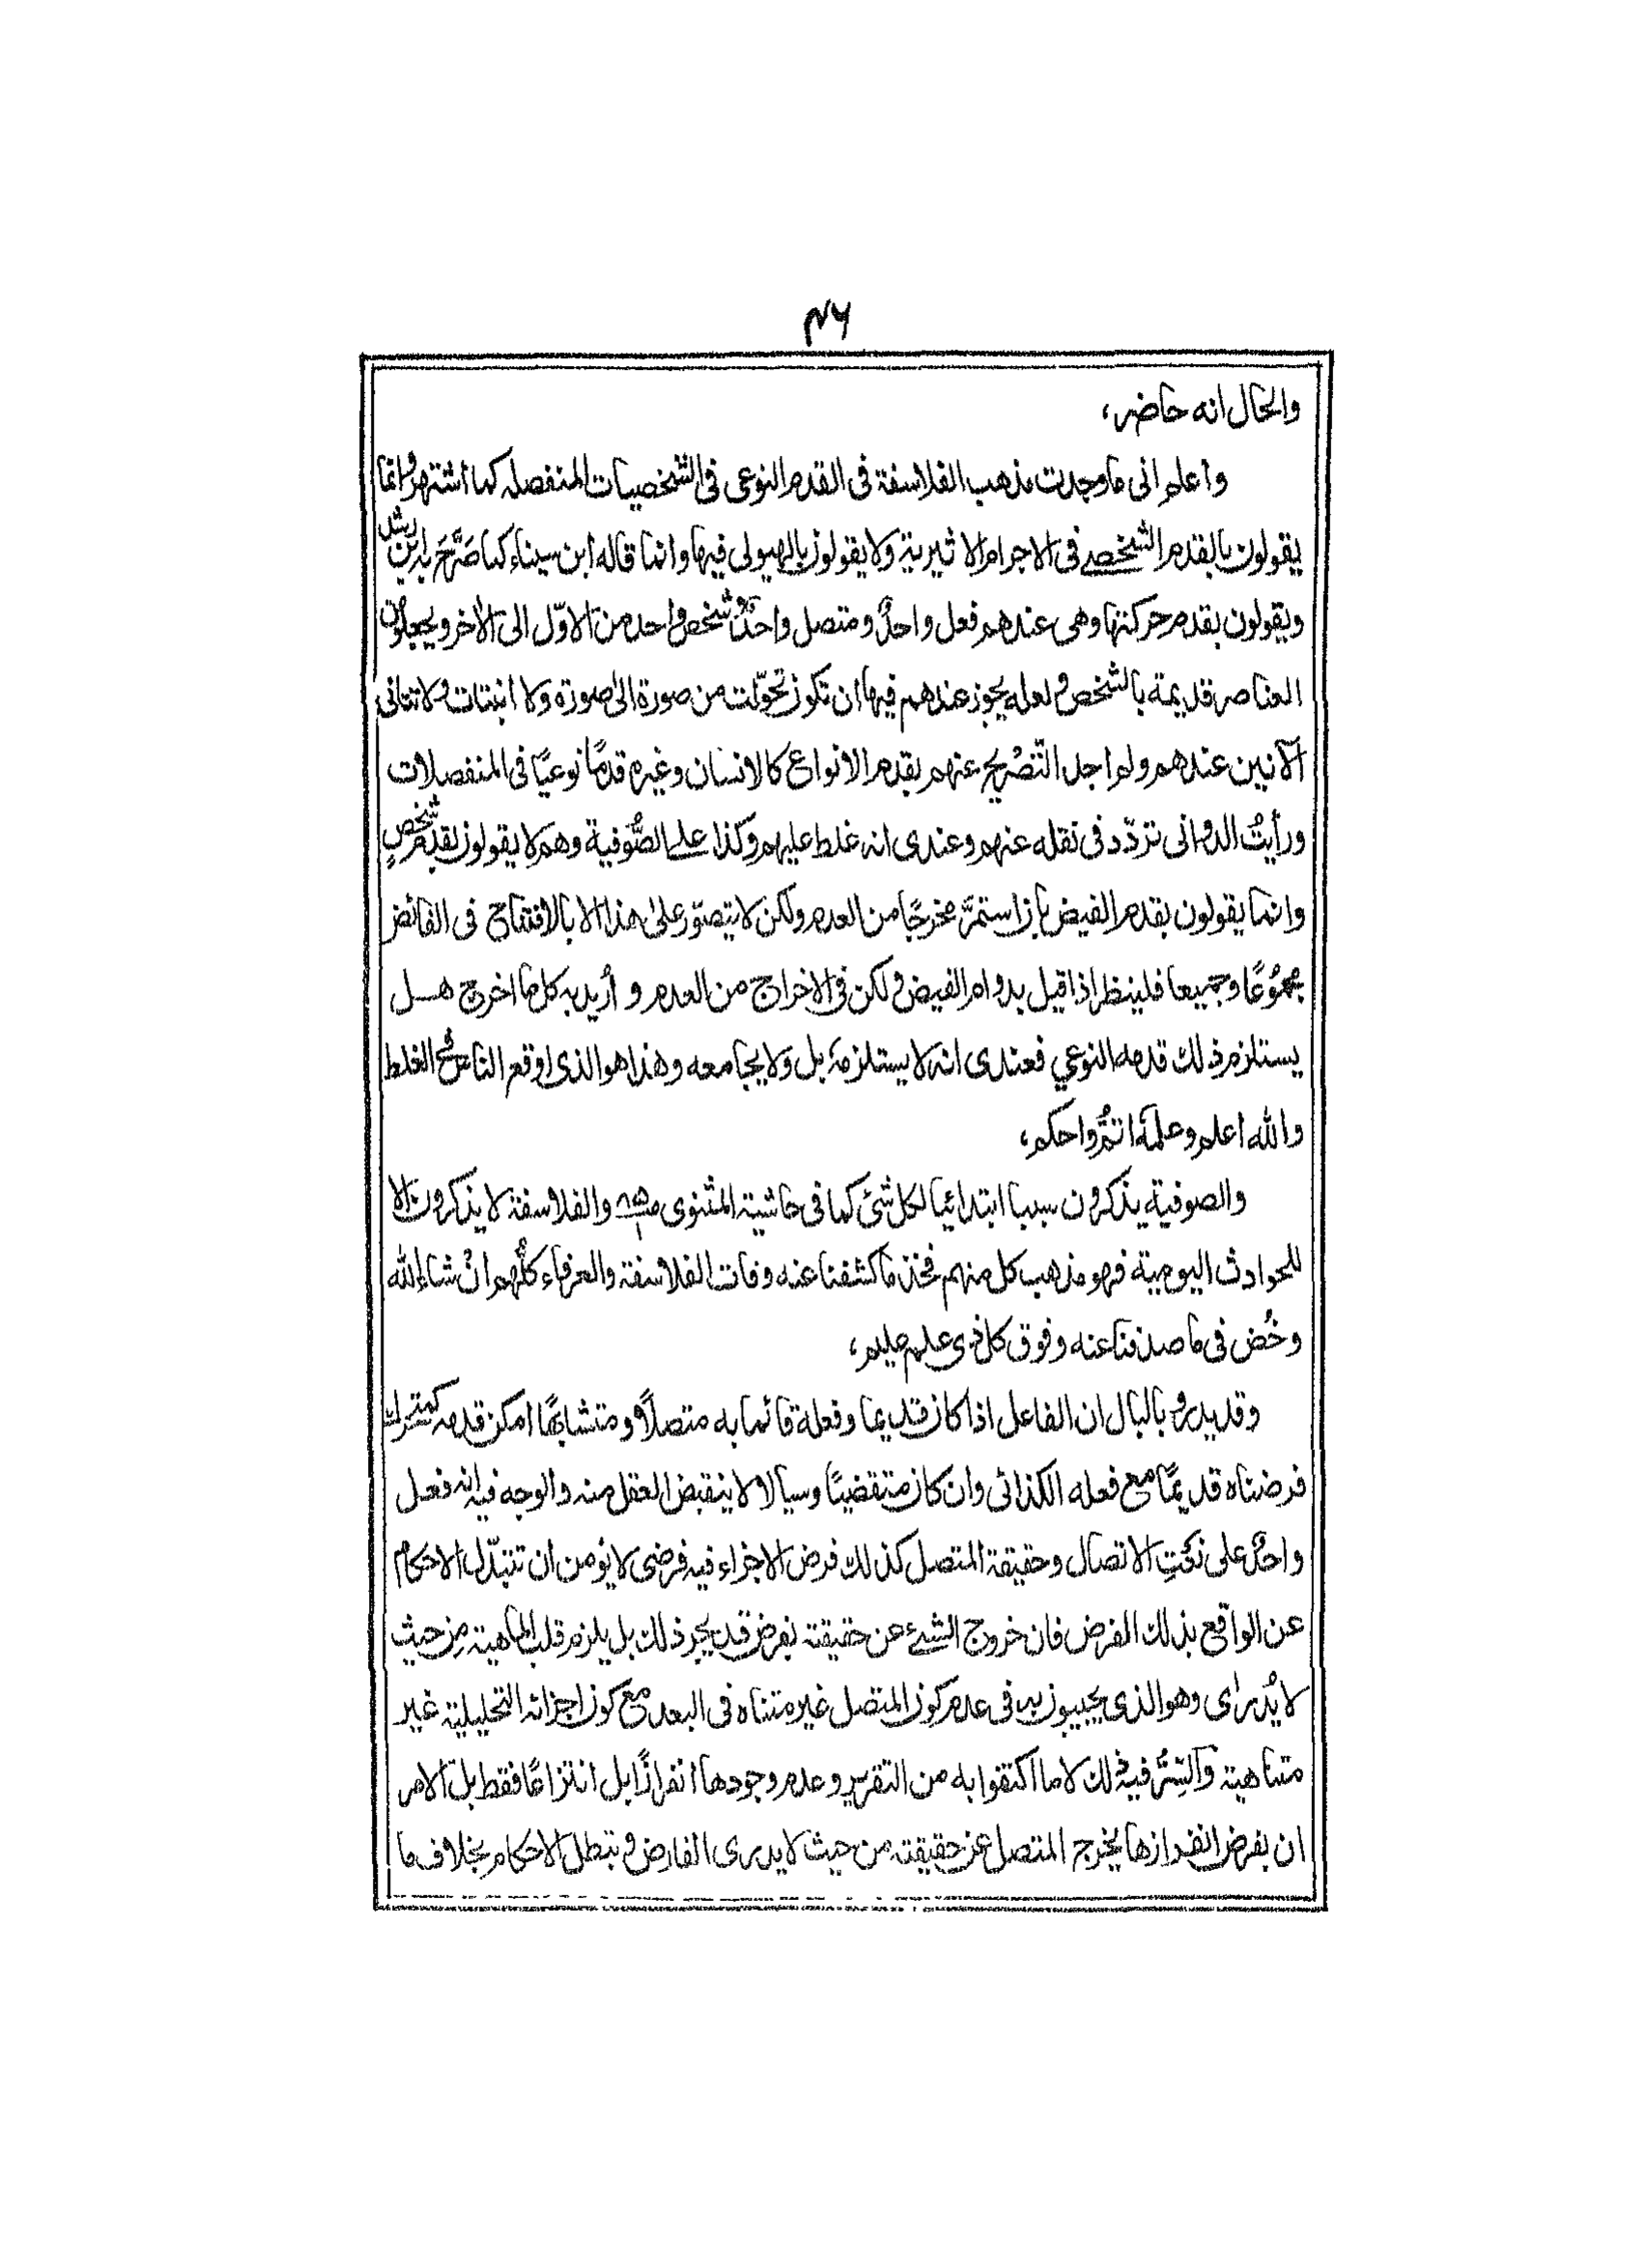 ۴۶
والحال انه حاضر،
واعلم انى ما وجدت مذهب الفلاسفة فى القدم النوعى فى الشخصيات المنفصله كما اشتهر وانما
يقولون بالقدم الشخصي فى الاجرام الاثيرية ولا يقولون بالهيولى فيها وانما قاله ابن سيناء كما صَرَّحَ به ابن رشد
ويقولون بقدم حركتها وهى عندهم فعل واحدٌ ومتصل واحدٌ وشخص واحد من الاوّل الى الاٰخر ويجعلون
العناصر قديمة بالشخص ولعله يجوز عندهم فيها ان تكون تحوّلت من صورة الىٰ صورة ولا انبتات ولا تتافى
الآنين عندهم ولم اجد التّصْريح عنهم بقدم الانواع كالانسان وغيره قدمًا نوعيًا فى المنفصلات
ورأيتُ الدوانى تردّد فى نقله عنهم وعندى انه غلط عليهم وكذا على الصُّوفية وهم لا يقولون بقدم شخصٍ
وانما يقولون بقدم الفيض بان استمرَّ مخرجًا من العدم ولكن لا يتصوّر علىٰ هذا الا بالافتتاح فى الفائض
مجموعًا وجميعا فلينظر اذا قيل بدوام الفيض ولكن فى الاخراج من العدم و اُريد به كل ما اخرج هــل
يستلزم ذلك قدمه النوعي فعندى انه لا يستلزمهُ بل ولا يجامعه وهذا هو الذى اوقع الناس فى الغلط
والله اعلم وعلمهٗ اتمُّ واحكم،
والصوفية يذكرون سببا ابتدائيا لكل شئ كما فى حاشية المثنوى والفلاسفة لا يذكرون الا
للحوادث اليومية فهو مذهب كل منهم فخذ ما كشفنا عنه وفات الفلاسفة والعرفاء كلُّهم انْ شاء الله
وخُض فى ما صدفنا عنه وفوق كل ذى علم عليم،
وقد يدور بالبال ان الفاعل اذا كان قديما وفعله قائما به متصلًا ومتشابهًا امكن قدمه كمتحرك
فرضناه قديمًا مع فعله الكذائى وان كان متقضيًا وسيالا ولا ينقبض العقل منه والوجه فيه انه فعل
واحدٌ على نحتِ الاتصال وحقيقة المتصل كذلك فرض الاجزاء فيه فرضى لا يؤمن ان تتبدّل الاحكام
عن الواقع بذلك الفرض فان خروج الشئ عن حقيقته بفرض قد يجر ذلك بل يلزم قلب الماهية من حيث
لا يُدرٰى وهو الذى يجيبون به فى عدم كون المتصل غير متناه فى البعد مع كون اجزائه التحليلية غير
متناهية والسِّرُّ فيه ذلك لا ما اكتفوا به من التقرير وعدم وجودها انفرازًا بل انتزاعًا فقط بل الامر
ان بفرض انفرازها يخرج المتصل عن حقيقته من حيث لا يدرى الفارض وتبطل الاحكام بخلاف ما